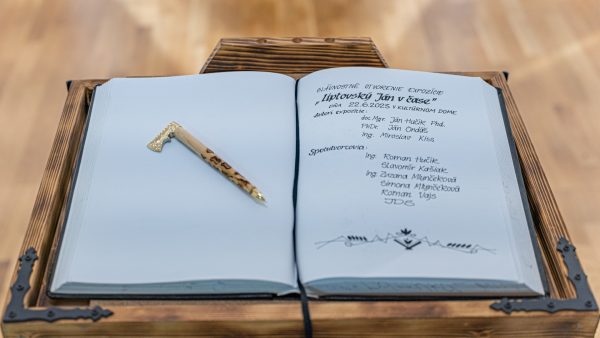 SLÁVNOSTNÉ OTVORENIE EXPOZÍCIE
„Liptovský Ján v čase“
DŇA 22.6.2023 V KULTÚRNOM DOME
Autori expozície:
doc. Mgr. Ján Hučík Phd.
PhDr. Ján Ondáš
Ing. Miroslav Kiva
Spolutvorcovia:
Ing. Roman Hučík
Slavomír Kašiak
Ing. Zuzana Mlynčeková
Simona Mlynčeková
Roman Vajs